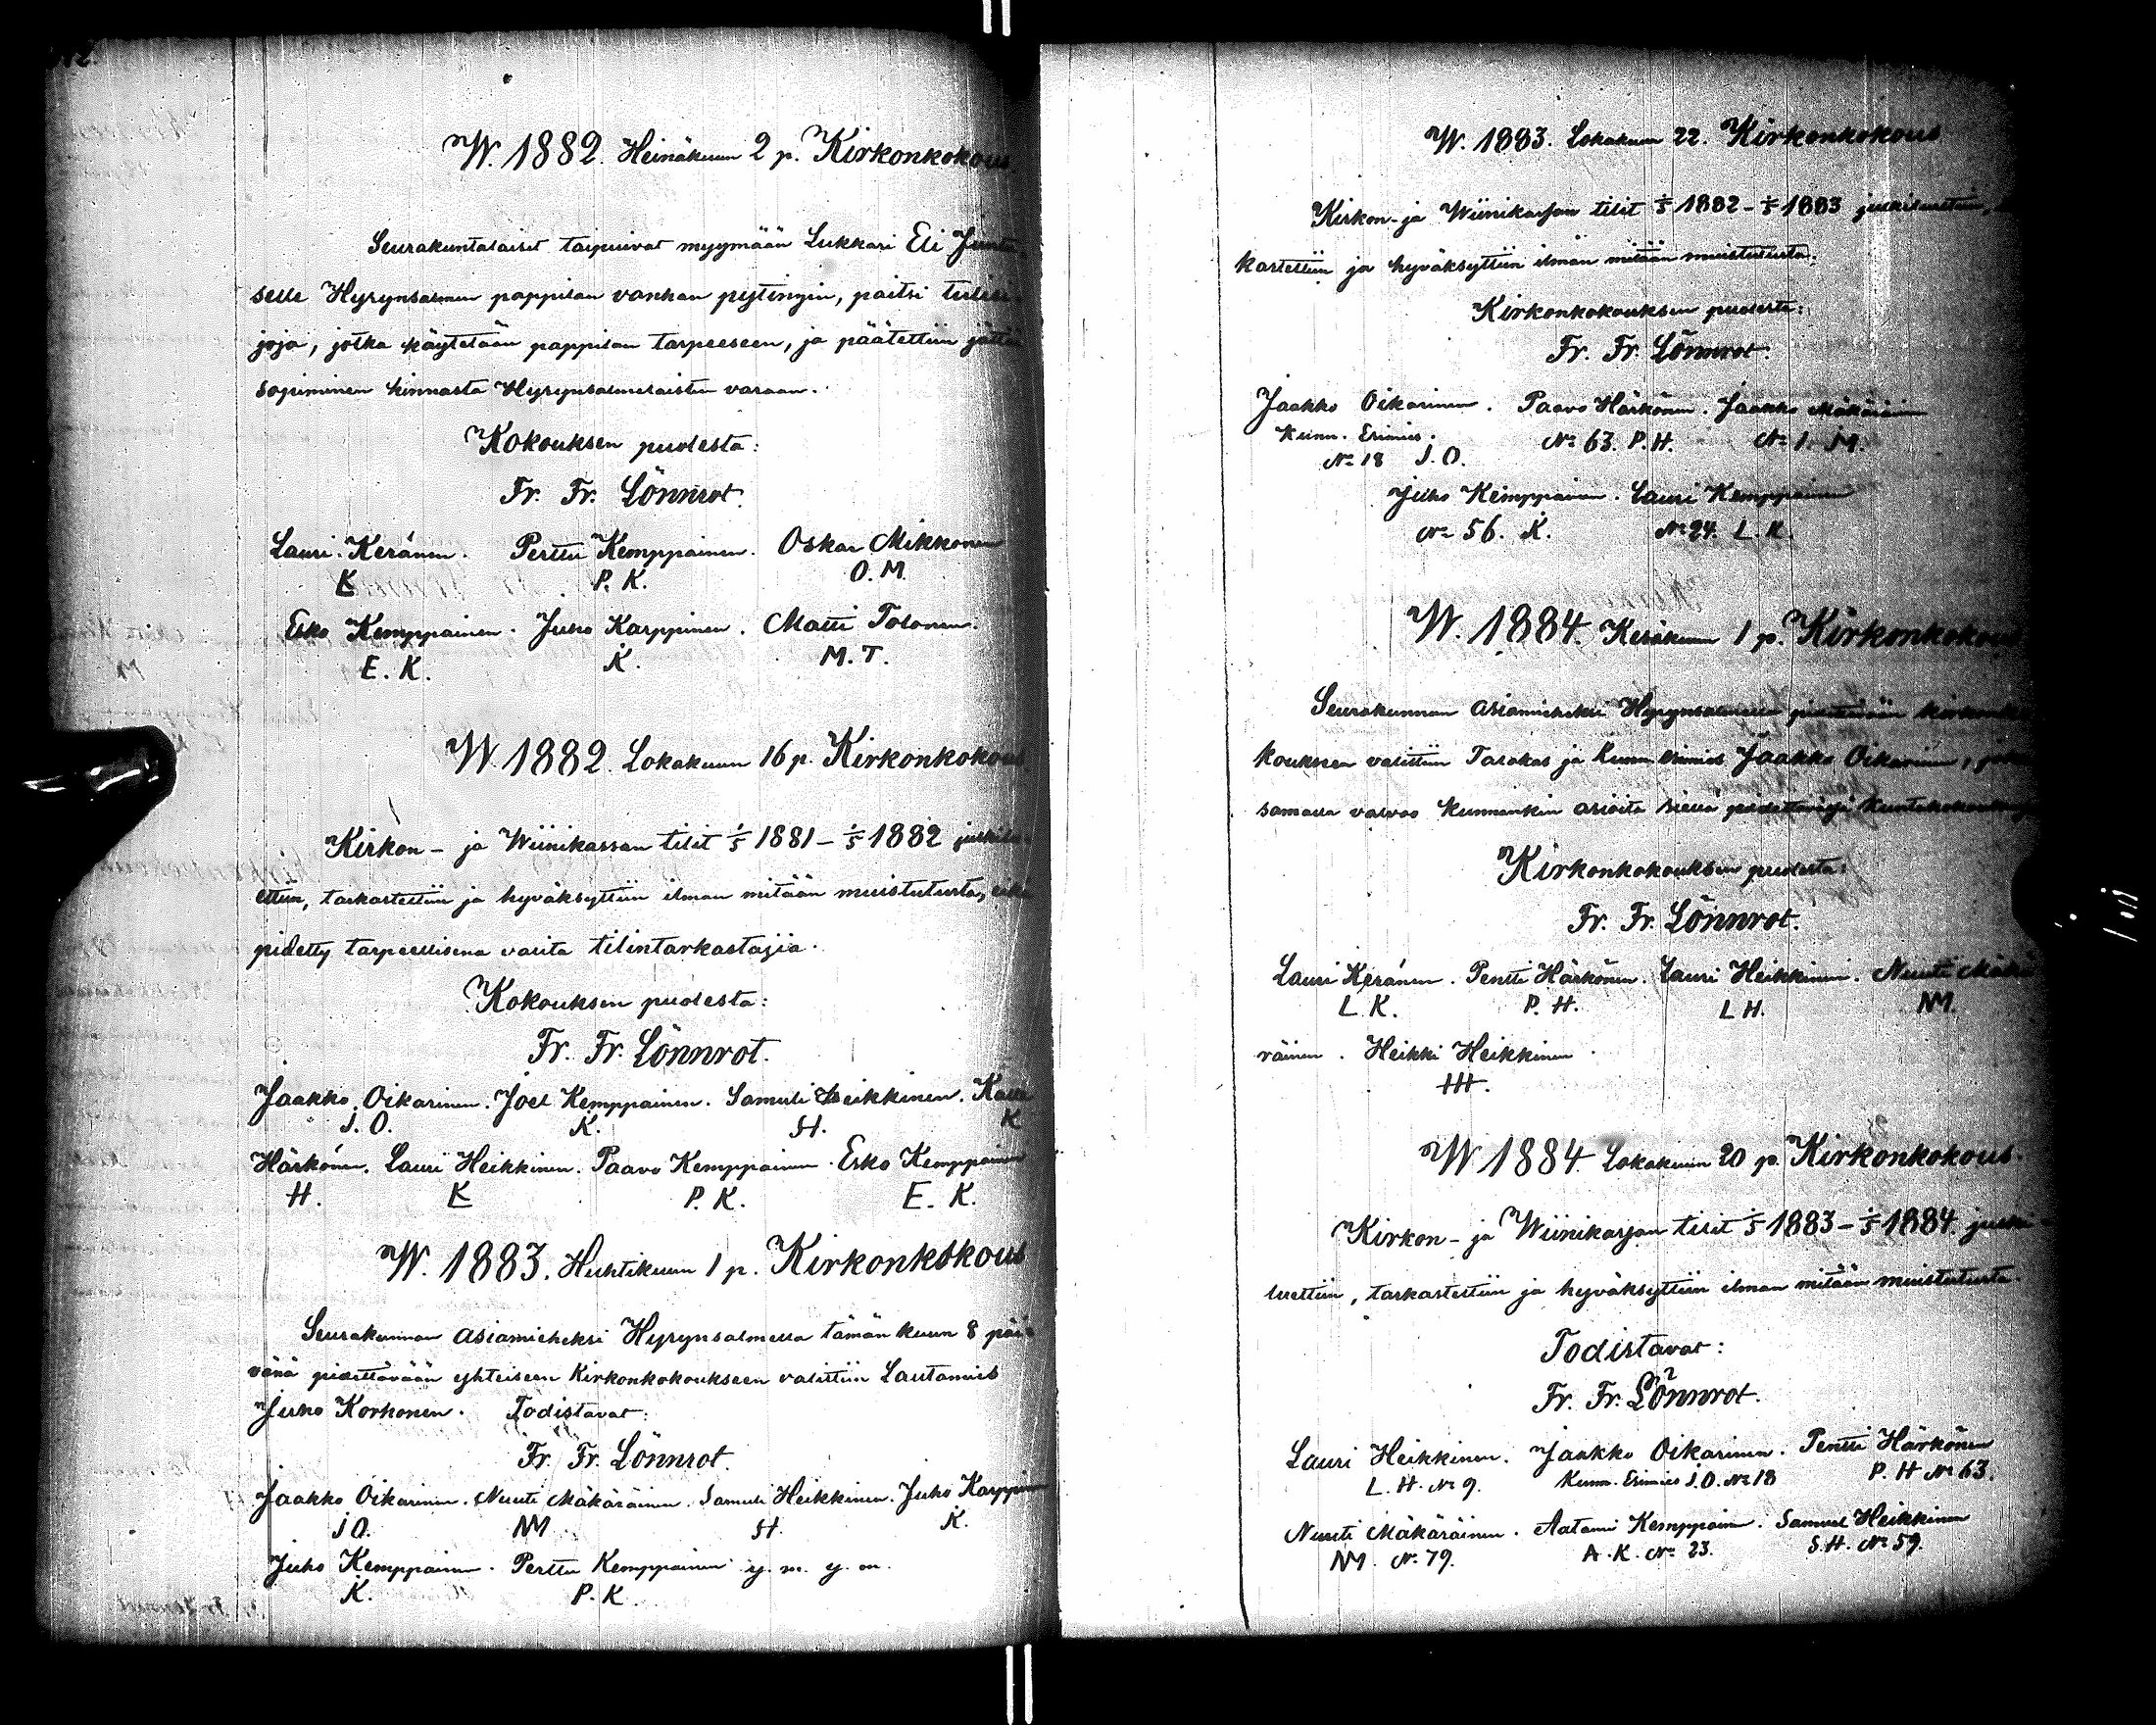 W. 1882. Heinäkuun 2 p. Kirkonkokous.
Seurakuntalaiset taipuivat myymään Lukkari Eli
selle Hyrynsalmen pappilan vanhan pytingin, paitsi
joja, jotka käytetään pappilan tarpeeseen, ja päätettiin jättää
sopiminen hinnasta Hyrynsalmelaisten varaan.
Kokouksen puolesta:
Fr. Fr. Lönnrot.
Lauri Keränen. Perttu Kemppainen. Oskar Mikkonen
K P. K. O. M.
Esko Kemppainen. Juho Karppinen. Matti Tolonen.
E. K. K. M. T.
W. 1882. Lokakuun 16 p. Kirkonkokous.
Kirkon- ja Wiinikassan tilit 1/5 1881 - 1/5 1882 julkilu-
ettiin, tarkastettiin ja hyväksyttiin ilman mitään muistutusta, eikä
pidetty tarpeellisena valita tilintarkastajia.
Kokouksen puolesta:
Fr. Fr. Lönnrot.
Jaakko Oikarinen. Joel Kemppainen. Samuli Heikkinen. Kalle
J. O. K. H. K
Härkönen. Lauri Heikkinen. Paavo Kemppainen. Esko Kemppainen
H. K P. K. E. K.
W. 1883. Huhtikuun 1 p. Kirkonkokous
Seurakunnan asiamieheksi Hyrynsalmella tämän kuun 8 päi-
vänä pidettävään yhteiseen Kirkonkokoukseen valittiin Lautamies
Juho Korhonen. Todistavat:
Fr. Fr. Lönnrot.
Jaakko Oikarinen. Nuutti Mäkäräinen. Samuli Heikkinen. Juho Karppinen
J O. NM H. K.
Juho Kemppainen. Perttu Kemppainen y. m. y. m.
K. P. K.
W. 1883. Lokakuun 22. Kirkonkokous
Kirkon- ja Wiinikassan tilit 1/5 1882 - 1/5 1883 julkiluettiin,
kastettiin ja hyväksyttiin ilman mitään muistutusta.
Kirkonkokouksen puolesta:
Fr. Fr. Lönnrot.
Jaakko Oikarinen. Paavo Härkönen. Jaakko Mäkäräinen
Kunn. Esimies. № 63. P. H. № 1. M.
№ 18 J. O.
Juho Kemppainen. Lauri Kemppainen
№ 56. K. № 24. L. K.
W. 1884. Kesäkuun 1 p. Kirkonkokous
Seurakunnan asiamieheksi Hyrynsalmella pidettävään kirkonko-
koukseen valittiin Talokas ja Kunn. Esimies Jaakko Oikarinen, joka
samalla valvoo kunnankin asioita siellä pidettävissä kuntakokouksissa
Kirkonkokouksen puolesta:
Fr. Fr. Lönnrot.
Lauri Keränen. Pentti Härkönen. Lauri Heikkinen. Nuutti Mäkä-
L. K. P. H. L H. NM.
räinen. Heikki Heikkinen.
HH.
W 1884. Lokakuun 20 p. Kirkonkokous.
Kirkon- ja Wiinikassan tilit 1/5 1883 - 1/5 1884. julki-
luettiin, tarkastettiin ja hyväksyttiin ilman mitään muistutusta.
Todistavat:
Fr. Fr. Lönnrot.
Lauri Heikkinen. Jaakko Oikarinen. Pentti Härkönen
L. H. № 9. Kunn. Esimies J. O. № 18 P. H № 63.
Nuutti Mäkäräinen. Aatami Kemppainen. Samuel Heikkinen
NM. № 79. A. K. № 23. S. H. № 59.